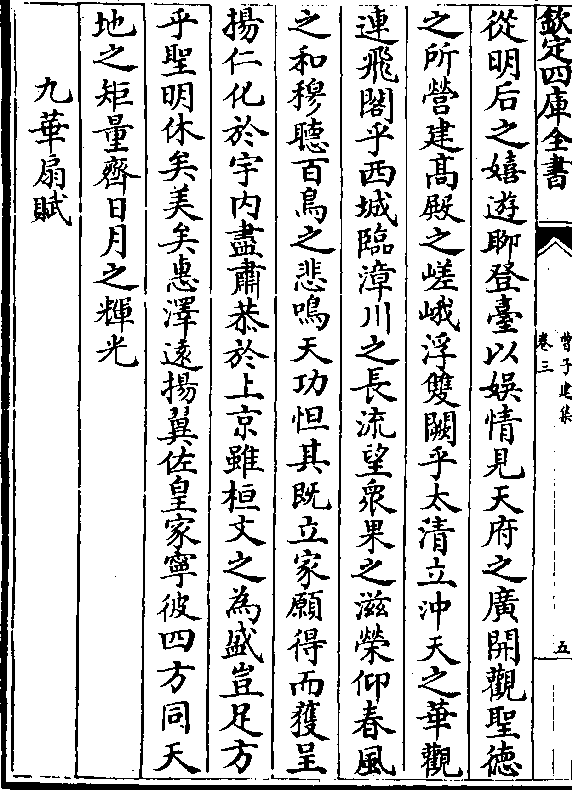 欽定四庫全書
曹子建集
卷三
五
從明后之嬉遊聊登臺以娛情見天府之廣開觀聖德
之所營建高殿之嵯峨浮雙闕乎太清立沖天之華觀
連飛閣乎西城臨漳川之長流望衆果之滋榮仰春風
之和穆聽百鳥之悲鳴天功怛其既立家願得而獲呈
揚仁化於宇内盡肅恭於上京雖桓文之為盛豈足方
乎聖明休矣美矣惠澤遠揚翼佐皇家寧彼四方同天
地之矩量齊日月之輝光
九華扇賦